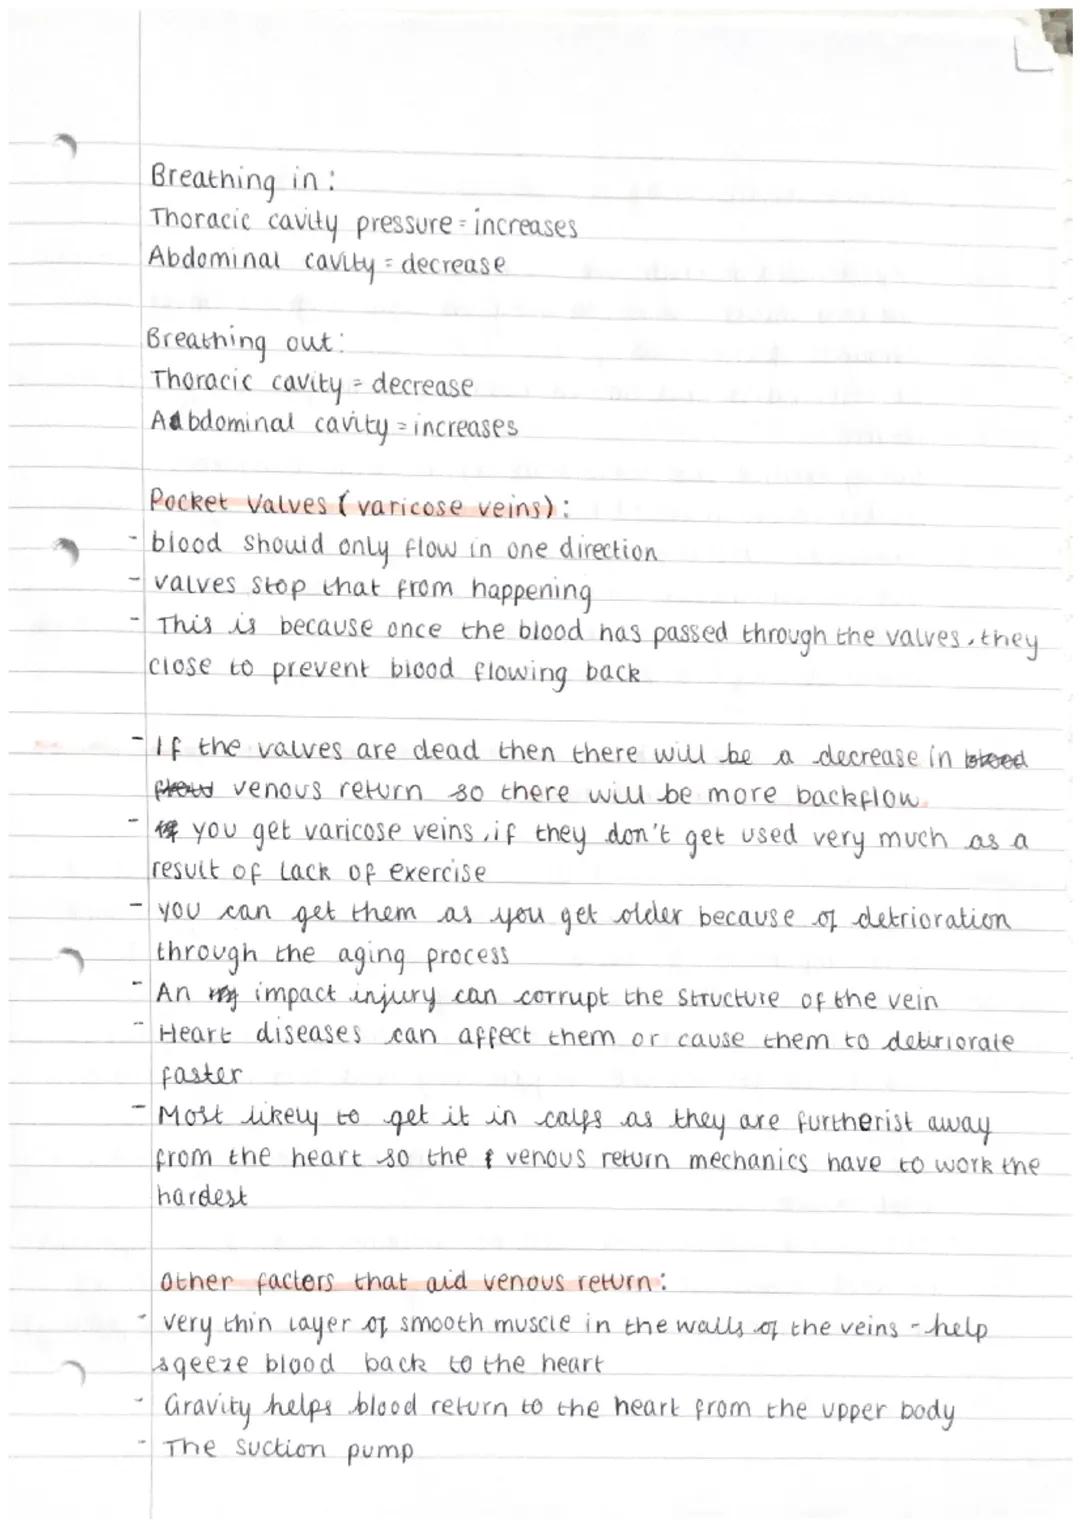 Breathing in:
Thoracic cavity pressure = increases
Abdominal cavity = decrease
Breathing out:
Thoracic cavity = decrease
Aabdominal cavity = increases
Pocket Valves (varicose veins):
- blood should only flow in one direction
- valves stop that from happening
- This is because once the blood has passed through the valves, they
close to prevent blood flowing back
- If the valves are dead then there will be a decrease in blood
flow venous return so there will be more backflow.
- if you get varicose veins, if they don't get used very much as a
result of lack of exercise
- you can get them as you get older because of detrioration
through the aging process
- An impact injury can corrupt the structure of the vein
- Heart diseases can affect them or cause them to detiriorate
faster
- Most likely to get it in calfs as they are furtherist away
from the heart so the f venous return mechanics have to work the
hardest
Other factors that aid venous return:
- very thin layer of smooth muscle in the walls of the veins - help
sqeeze blood back to the heart
- Gravity helps blood return to the heart from the upper body
- The suction pump